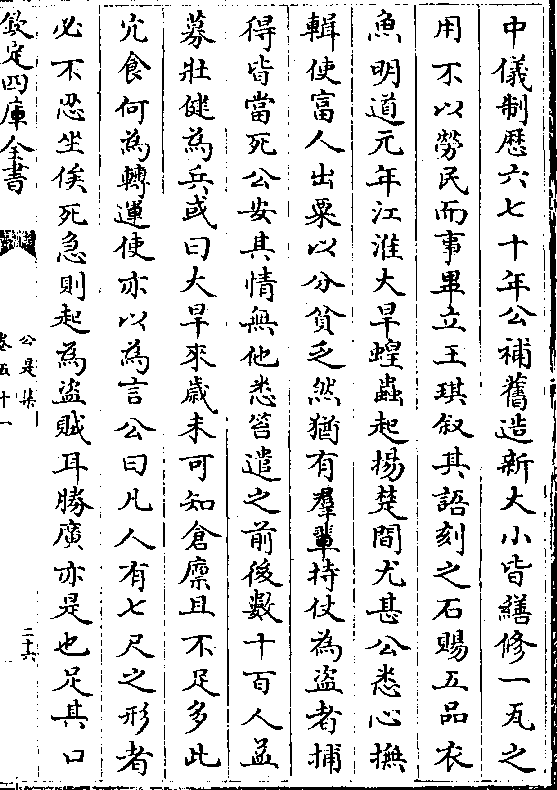 中儀制歷六七十年公補舊造新大小皆繕修一瓦之
用不以勞民而事畢立王琪叙其語刻之石賜五品衣
魚明道元年江淮大旱蝗蟲起揚楚間尤甚公悉心撫
輯使富人出粟以分貧乏然猶有羣輩持仗為盗者捕
得皆當死公安其情無他悉笞遣之前後數十百人益
募壯健為兵或曰大旱來歲未可知倉廪且不足多此
宂食何為轉運使亦以為言公曰凡人有七尺之形者
必不忍坐俟死急則起為盗賊耳勝廣亦是也足其口
欽定四庫全書
公是集
卷五十一
二十六